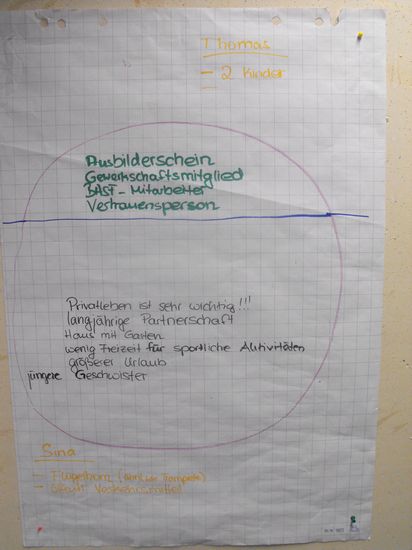 Thomas
- 2 Kinder
-
Ausbilderschein
Gewerkschaftsmitglied
BAST - Mitarbeiter
Vertrauensperson
Privatleben ist sehr wichtig!!!
langjährige Partnerschaft
Haus mit Garten
wenig Freizeit für sportliche Aktivitäten
größerer Urlaub
jüngere Geschwister
Sina
- Flügelhorn (ähnl. wie Trompete)
- Verkehrsmittel